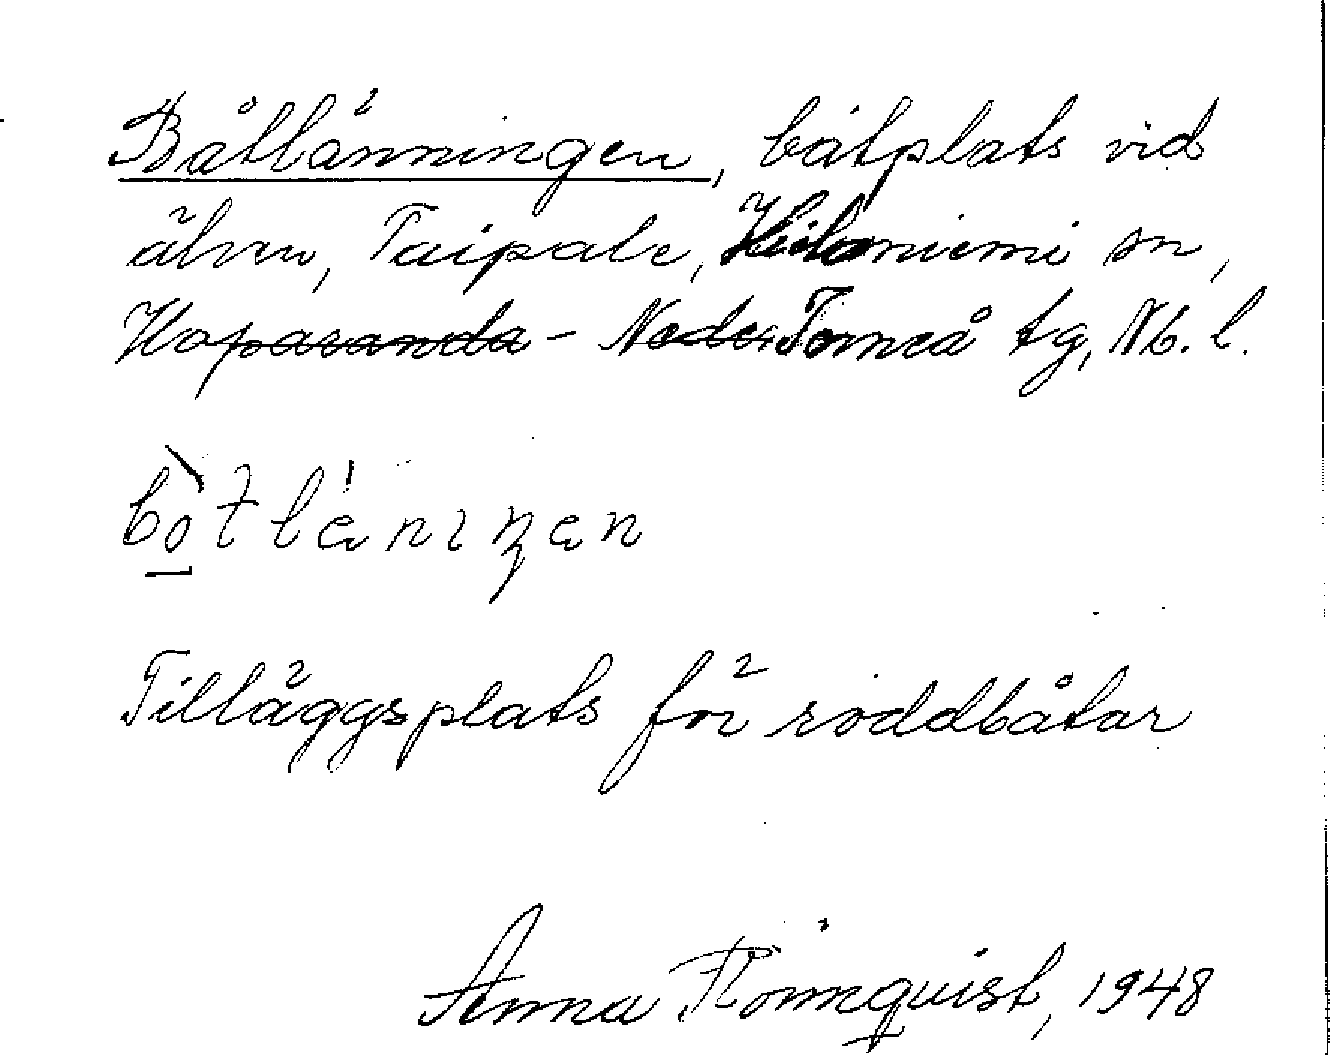 Båtlänningen, båtplats vid
älven, Taipale, sn,
Haparanda - Neder Torneå tg, Nb. l.
Tilläggsplats för roddbåtar
Anna Rönnquist, 1948